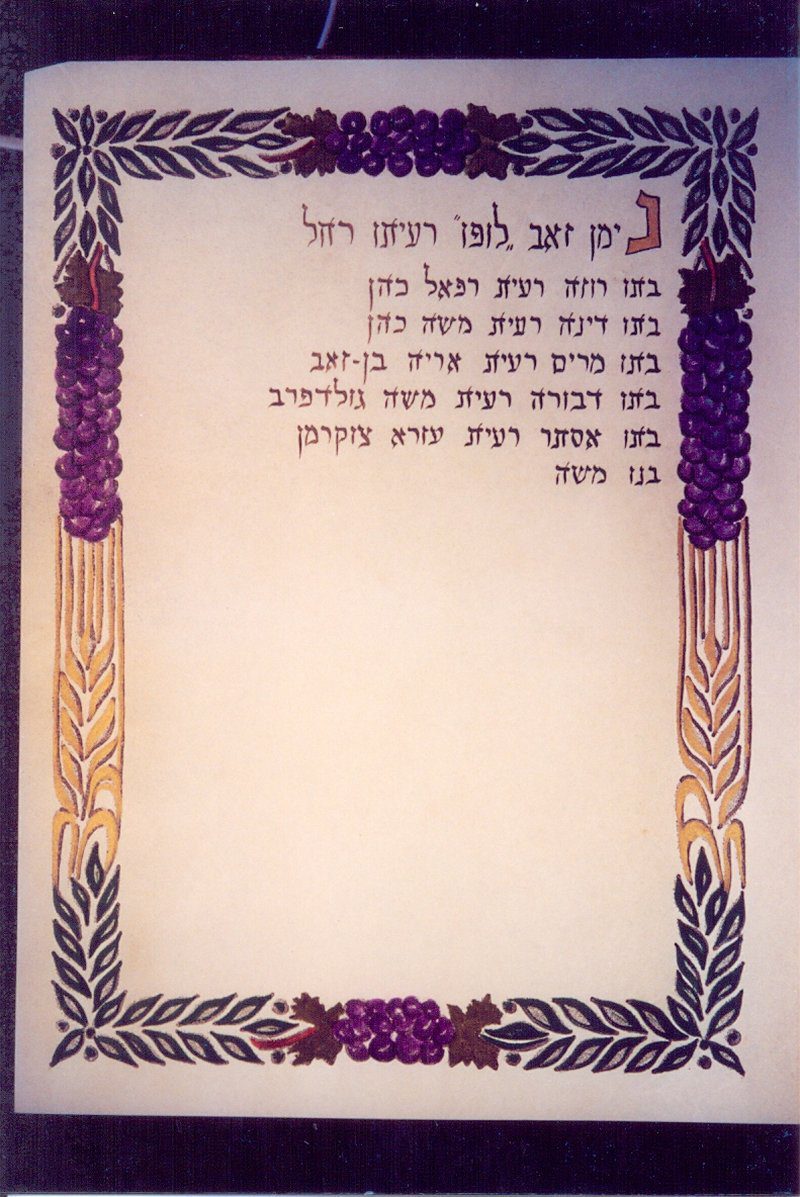 נימן זאב „לופו״ רעיתו רחל
בתו רוזה רעית רפאל כהן
בתו דינה רעית משה כהן
בתו מרים רעית אריה בן-זאב
בתו דבורה רעית משה גולדפרב
בתו אסתר רעית עזרא צוקרמן
בנו משה